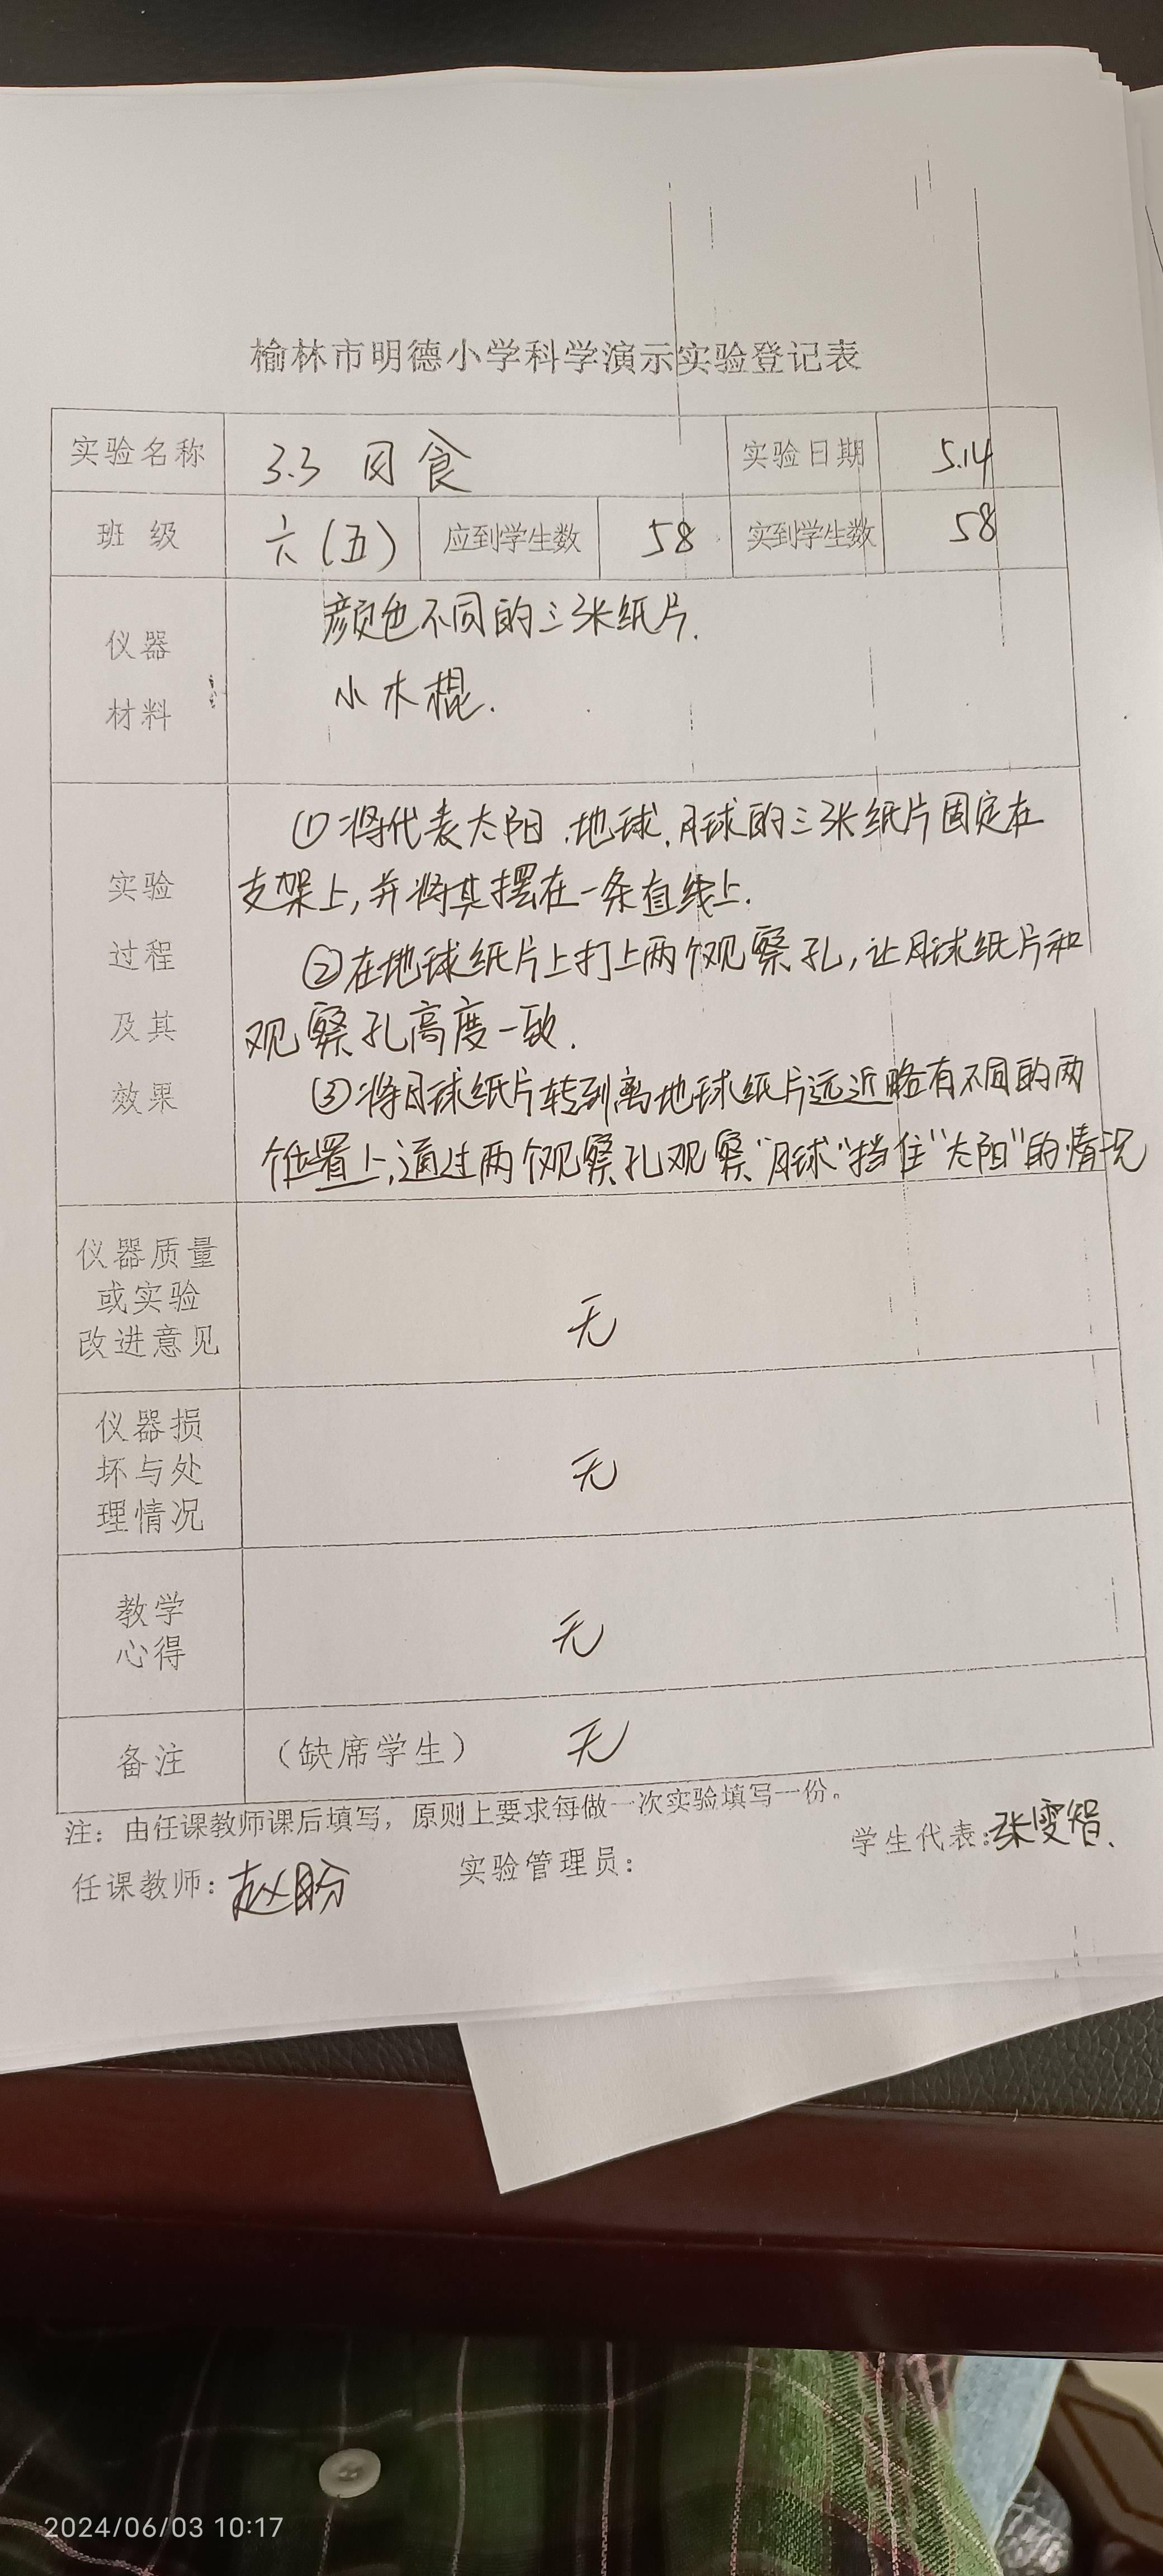 榆林市明德小学科学演示实验登记表
实验名称 3.3 日食 实验日期 5.14
班级 六(五) 应到学生数 58 实到学生数 58
仪器
材料
颜色不同的三张纸片.
小木棍.
实验
过程
及其
效果
①将代表太阳、地球、月球的三张纸片固定在
支架上,并将其摆在一条直线上.
②在地球纸片上打上两个观察孔,让月球纸片和
观察孔高度一致.
③将月球纸片转到离地球纸片远近略有不同的两
个位置上,通过两个观察孔观察"月球"挡住"太阳"的情况
仪器质量
或实验
改进意见
无
仪器损
坏与处
理情况
无
教学
心得
无
备注 (缺席学生) 无
注：由任课教师课后填写，原则上要求每做一次实验填写一份。
任课教师：赵盼 实验管理员： 学生代表：张雯智.
2024/06/03 10:17